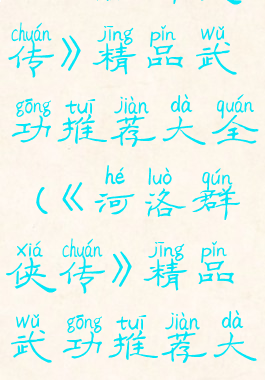 chuán jīng pǐn wǔ
传》精品武
gōng tuī jiàn dà quán
功推荐大全
hé luò qún
(《河洛群
xiá chuán jīng pǐn
侠传》精品
wǔ gōng tuī jiàn dà
武功推荐大